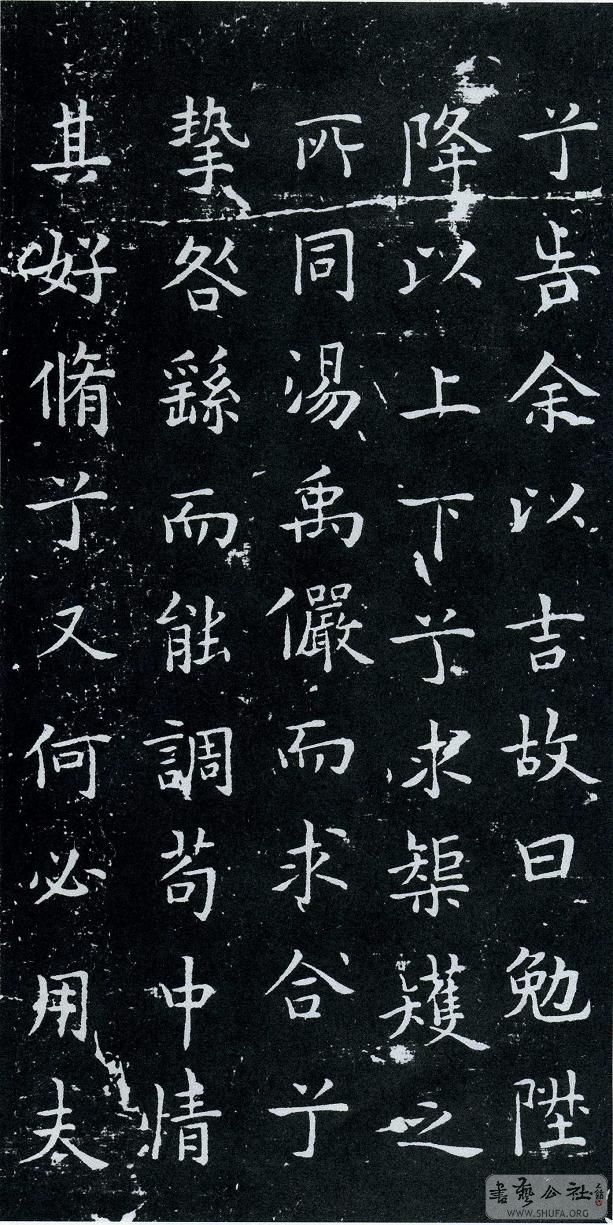 兮告余以吉故曰勉陞
降以上下兮求榘矱之
所同湯禹儼而求合兮
摯咎繇而能調苟中情
其好脩兮又何必用夫
書藝公社
WWW.SHUFA.ORG